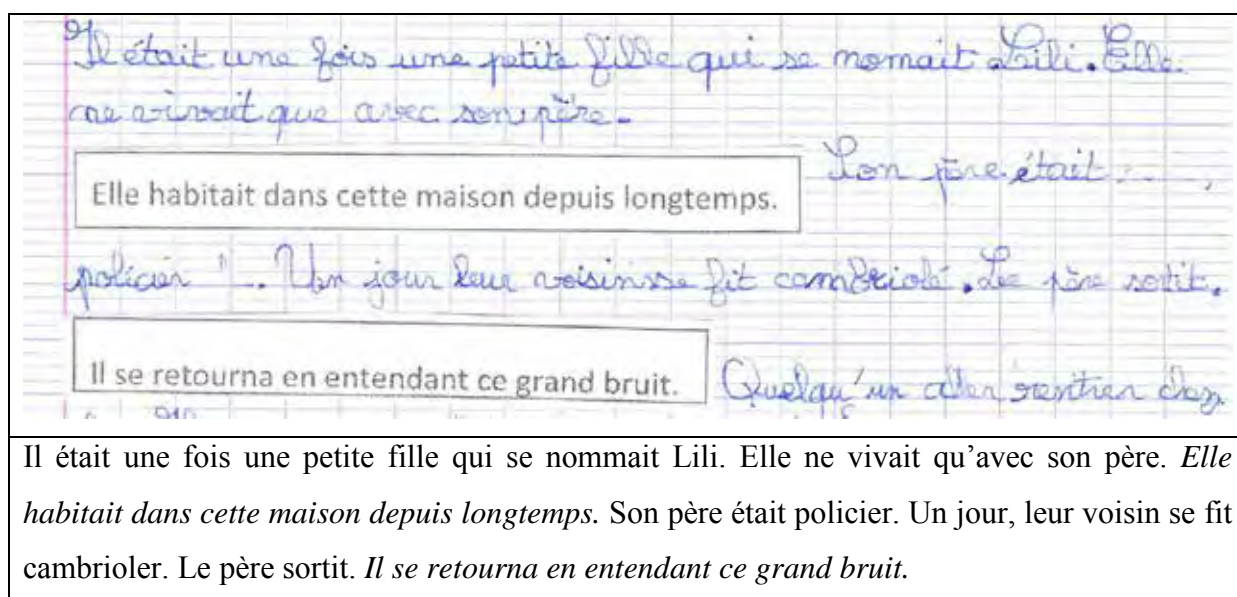 Il était une fois une petite fille qui se nomait Lili. Elle
ne vivait que avec son père.
Elle habitait dans cette maison depuis longtemps.
Son père était
policier . Un jour leur voisin se fit cambriolé. Le père sortit.
Il se retourna en entendant ce grand bruit.
Quelqu'un aller rentrer chez
Il était une fois une petite fille qui se nommait Lili. Elle ne vivait qu'avec son père. Elle
habitait dans cette maison depuis longtemps. Son père était policier. Un jour, leur voisin se fit
cambrioler. Le père sortit. Il se retourna en entendant ce grand bruit.